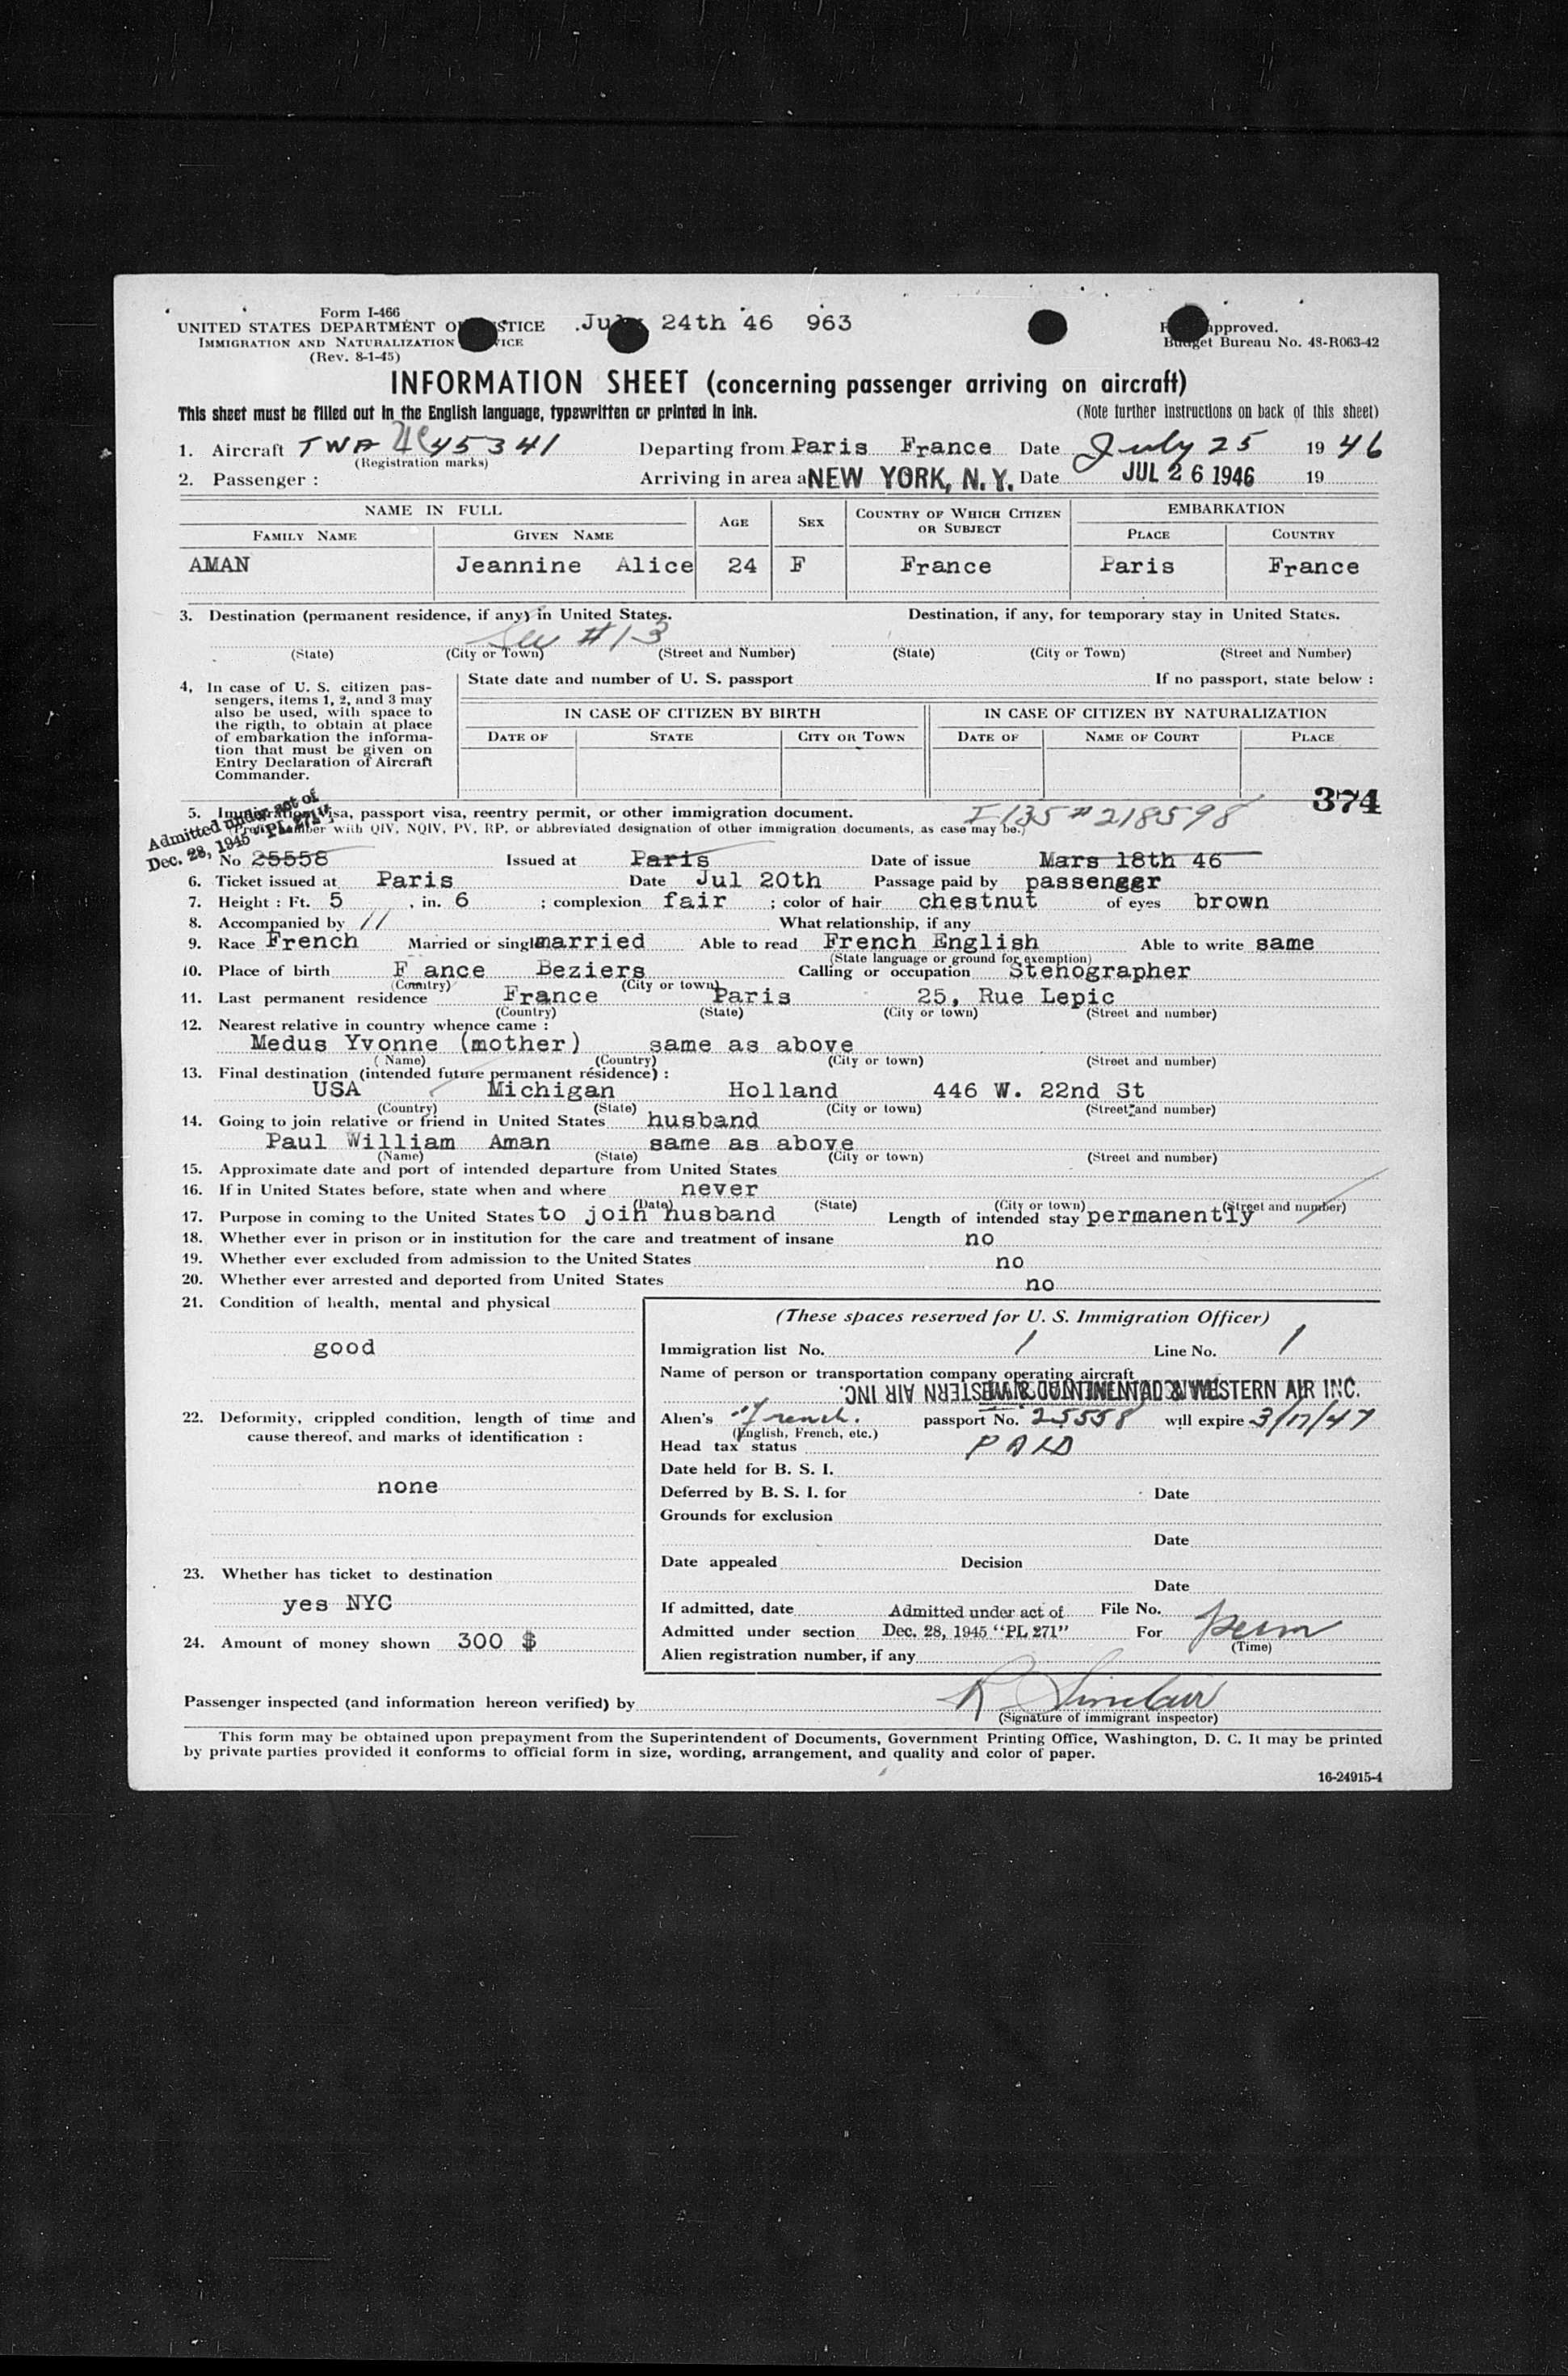 Form I-466
UNITED STATES DEPARTMENT OF JUSTICE July 24th 46 963 Form approved.
IMMIGRATION AND NATURALIZATION SERVICE Budget Bureau No. 43-R063-42
(Rev. 8-1-45)
INFORMATION SHEET (concerning passenger arriving on aircraft)
This sheet must be filled out in the English language, typewritten or printed in ink. (Note further instructions on back of this sheet)
1. Aircraft TWA 45341 Departing from Paris France Date July 25 19 46
(Registration marks)
2. Passenger : Arriving in area a NEW YORK, N.Y. Date JUL 26 1946 19
NAME IN FULL AGE SEX COUNTRY OF WHICH CITIZEN OR SUBJECT EMBARKATION
FAMILY NAME GIVEN NAME PLACE COUNTRY
AMAN Jeannine Alice 24 F France Paris France
3. Destination (permanent residence, if any) in United States. Destination, if any, for temporary stay in United States.
See #13
(State) (City or Town) (Street and Number) (State) (City or Town) (Street and Number)
4, In case of U. S. citizen pas-
sengers, items 1, 2, and 3 may
also be used, with space to
the rigth, to obtain at place
of embarkation the informa-
tion that must be given on
Entry Declaration of Aircraft
Commander.
State date and number of U. S. passport If no passport, state below :
IN CASE OF CITIZEN BY BIRTH IN CASE OF CITIZEN BY NATURALIZATION
DATE OF STATE CITY OR TOWN DATE OF NAME OF COURT PLACE
374
5. Immigration visa, passport visa, reentry permit, or other immigration document. I 135 # 218598
(Prefix number with QIV, NQIV, PV, RP, or abbreviated designation of other immigration documents, as case may be.)
Admitted under act of
Dec. 28, 1945 "PL 271"
No 25558 Issued at Paris Date of issue Mars 18th 46
6. Ticket issued at Paris Date Jul 20th Passage paid by passenger
7. Height : Ft. 5 , in. 6 ; complexion fair ; color of hair chestnut of eyes brown
8. Accompanied by // What relationship, if any
9. Race French Married or single married Able to read French English Able to write same
(State language or ground for exemption)
10. Place of birth F ance Beziers Calling or occupation Stenographer
(Country) (City or town)
11. Last permanent residence France Paris 25, Rue Lepic
(Country) (State) (City or town) (Street and number)
12. Nearest relative in country whence came :
Medus Yvonne (mother) same as above
(Name) (Country) (City or town) (Street and number)
13. Final destination (intended future permanent résidence) :
USA Michigan Holland 446 W. 22nd St
(Country) (State) (City or town) (Street and number)
14. Going to join relative or friend in United States husband
Paul William Aman same as above
(Name) (State) (City or town) (Street and number)
15. Approximate date and port of intended departure from United States
16. If in United States before, state when and where never
(Date) (State) (City or town) (Street and number)
17. Purpose in coming to the United States to join husband Length of intended stay permanently
18. Whether ever in prison or in institution for the care and treatment of insane no
19. Whether ever excluded from admission to the United States no
20. Whether ever arrested and deported from United States no
21. Condition of health, mental and physical
good
22. Deformity, crippled condition, length of time and
cause thereof, and marks of identification :
none
23. Whether has ticket to destination
yes NYC
24. Amount of money shown 300 $
(These spaces reserved for U. S. Immigration Officer)
Immigration list No. 1 Line No. 1
Name of person or transportation company operating aircraft
& WESTERN AIR INC.
Alien's French. passport No. 25558 will expire 3/17/47
(English, French, etc.)
Head tax status PAID
Date held for B. S. I.
Deferred by B. S. I. for Date
Grounds for exclusion
Date
Date appealed Decision
Date
If admitted, date Admitted under act of File No.
Admitted under section Dec. 28, 1945 "PL 271" For perm
(Time)
Alien registration number, if any
Passenger inspected (and information hereon verified) by R Sinclair
(Signature of immigrant inspector)
This form may be obtained upon prepayment from the Superintendent of Documents, Government Printing Office, Washington, D. C. It may be printed
by private parties provided it conforms to official form in size, wording, arrangement, and quality and color of paper.
16-24915-4